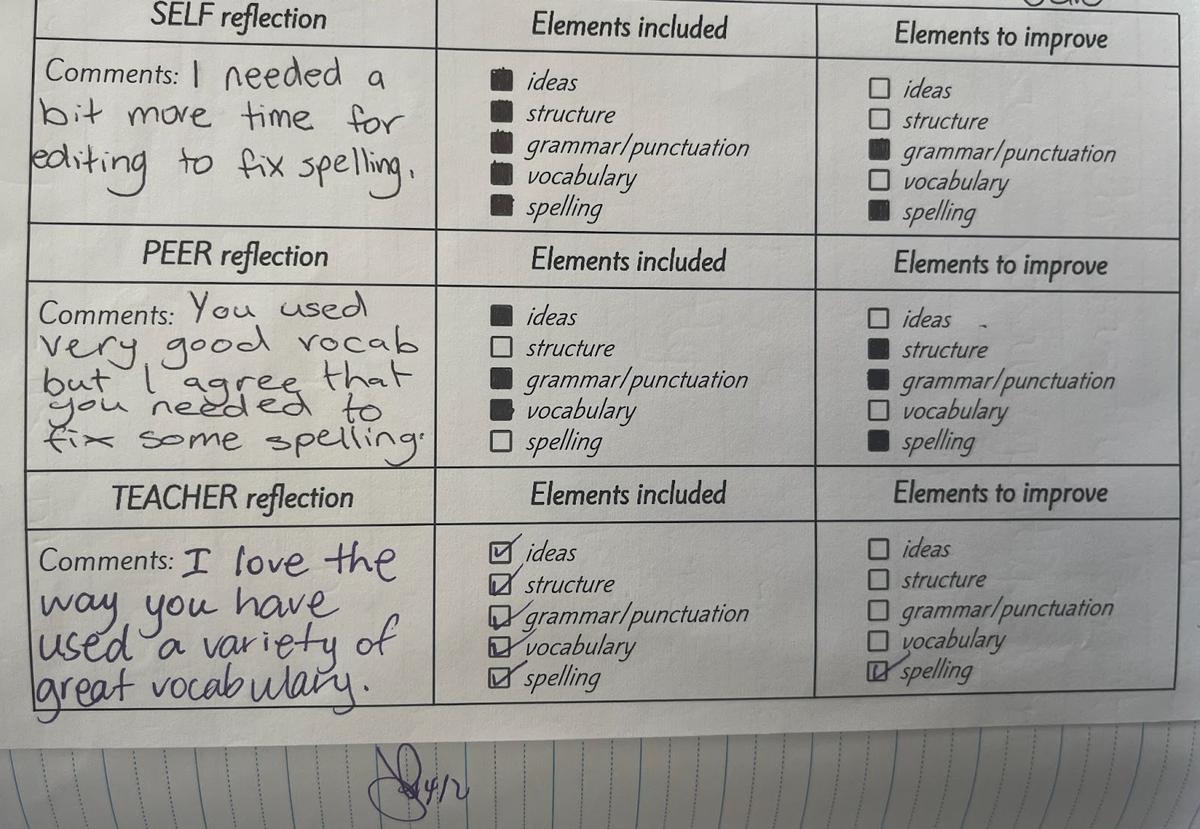 SELF reflection
Elements included
Elements to improve
Comments: I needed a
bit more time for
editing to fix spelling.
ideas
structure
grammar/punctuation
vocabulary
spelling
ideas
structure
grammar/punctuation
vocabulary
spelling
PEER reflection
Elements included
Elements to improve
Comments: You used
very good vocab
but I agree that
you needed to
fix some spelling.
ideas
structure
grammar/punctuation
vocabulary
spelling
ideas
structure
grammar/punctuation
vocabulary
spelling
TEACHER reflection
Elements included
Elements to improve
Comments: I love the
way you have
used a variety of
great vocabulary.
ideas
structure
grammar/punctuation
vocabulary
spelling
ideas
structure
grammar/punctuation
vocabulary
spelling
4/2